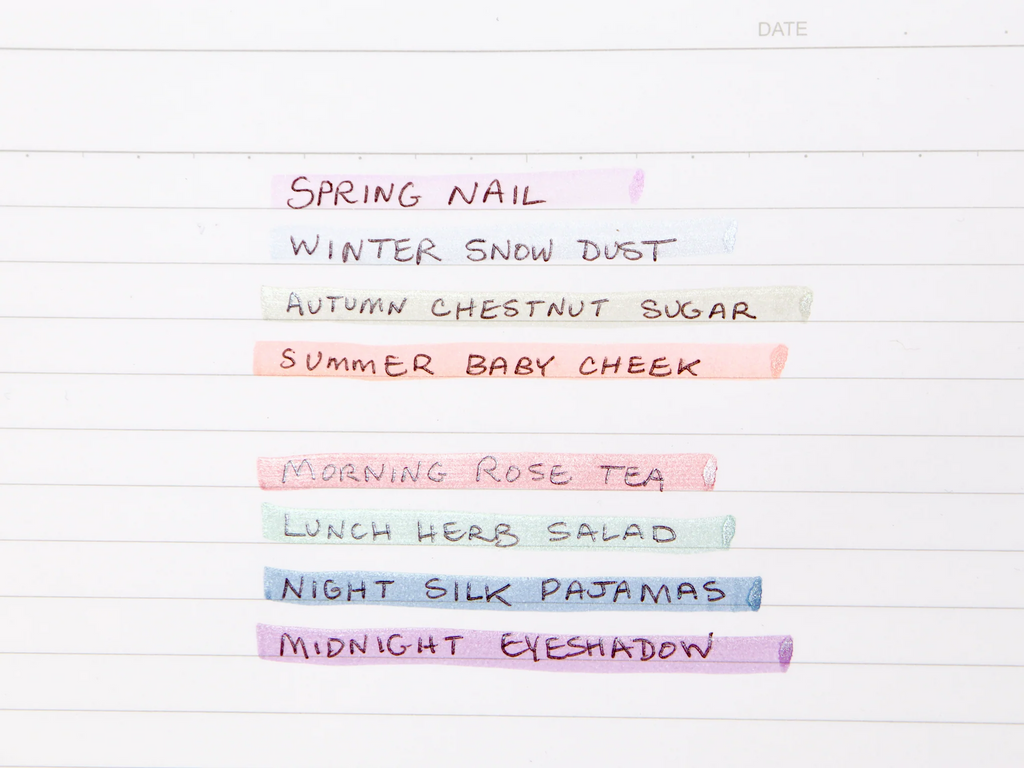 DATE
SPRING NAIL
WINTER SNOW DUST
AUTUMN CHESTNUT SUGAR
SUMMER BABY CHEEK
MORNING ROSE TEA
LUNCH HERB SALAD
NIGHT SILK PAJAMAS
MIDNIGHT EYESHADOW